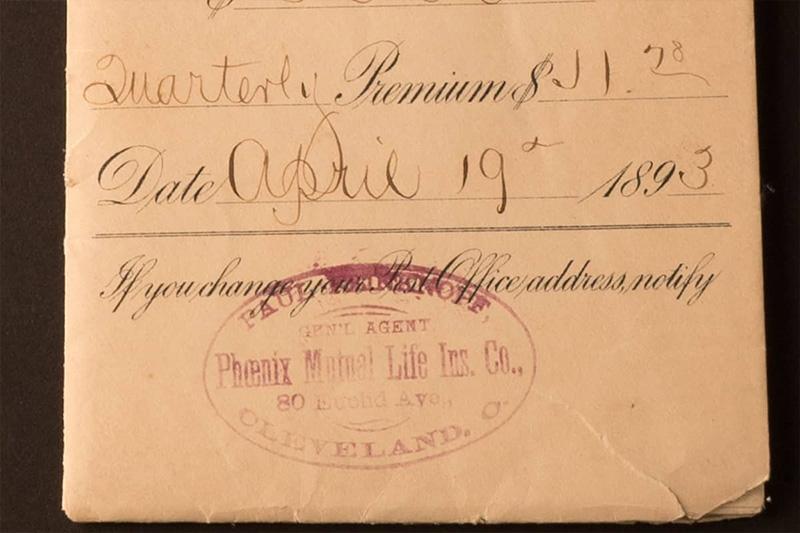 Quarterly Premium $ 11.78
Date April 19 1893
If you change your Post Office address, notify
PAUL
GEN'L AGENT
Phœnix Mutual Life Ins. Co.,
80 Euclid Ave.,
CLEVELAND, O.